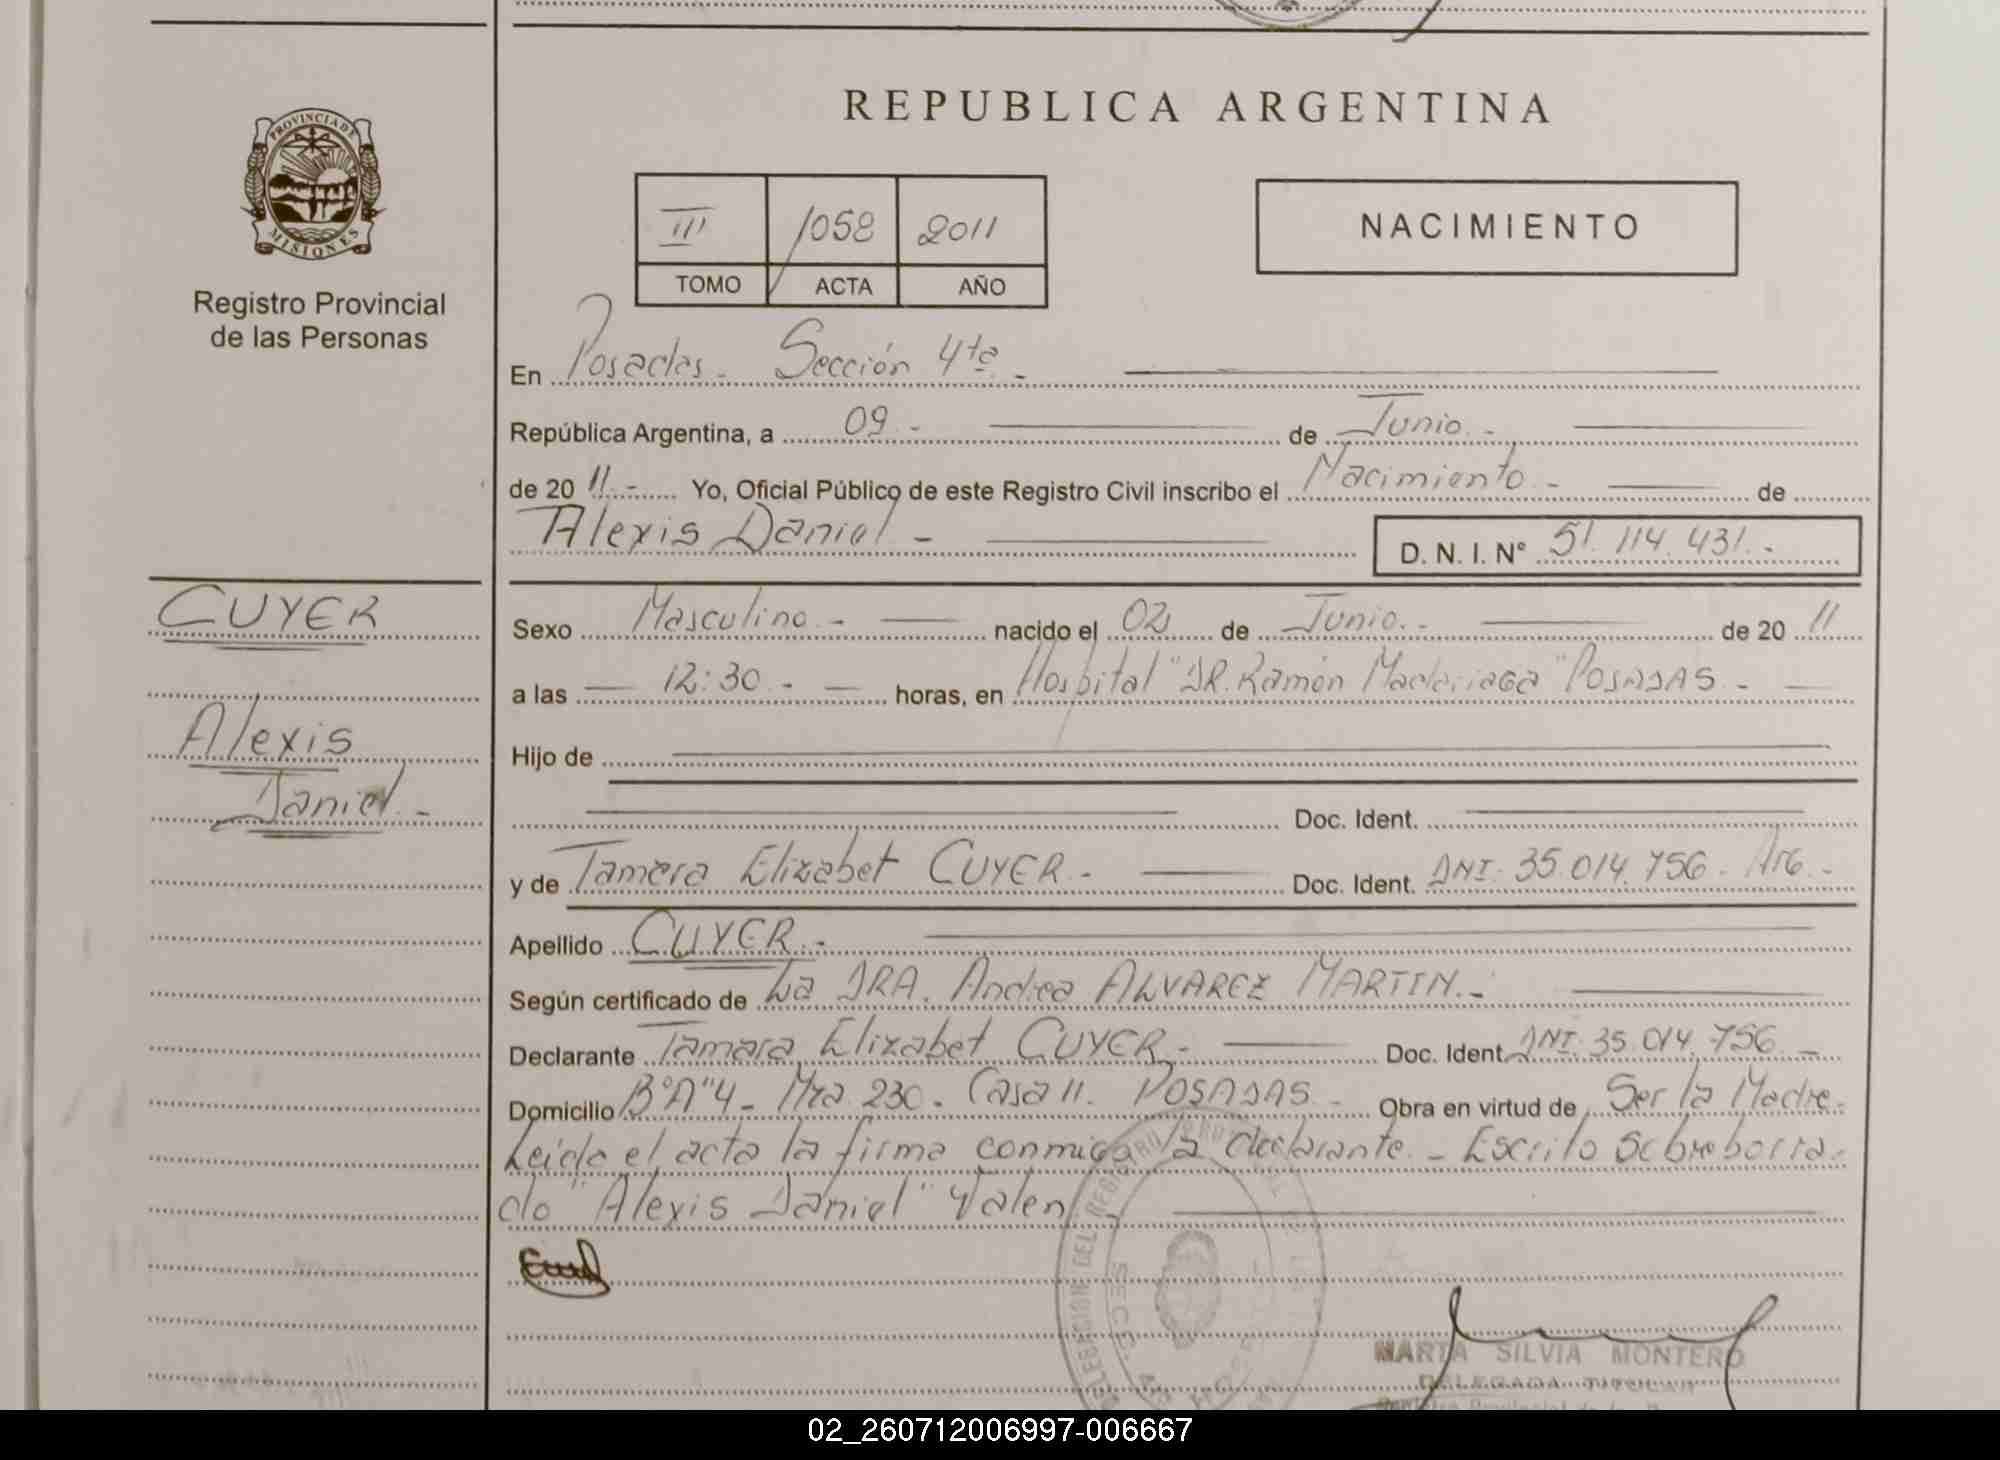 REPUBLICA ARGENTINA
PROVINCIA DE MISIONES
Registro Provincial
de las Personas
III 1058 2011
TOMO ACTA AÑO
NACIMIENTO
En Posadas - Sección 4ta -
República Argentina, a 09 - de Junio. -
de 20 11. - Yo, Oficial Público de este Registro Civil inscribo el Nacimiento - de
Alexis Daniel -
D. N. I. Nº 51.114.431. -
CUYER
Alexis
Daniel. -
Sexo Masculino - nacido el 02 de Junio. - de 20 11
a las 12:30 - horas, en Hospital "DR. Ramón Madariaga" POSADAS -
Hijo de
Doc. Ident.
y de Tamara Elizabet CUYER. - Doc. Ident. DNI. 35.014.756 - Arg. -
Apellido CUYER. -
Según certificado de La DRA. Andrea ALVAREZ MARTIN. -
Declarante Tamara Elizabet CUYER - Doc. Ident. DNI. 35.014.756 -
Domicilio Bº A"4 - Mza 230 - Casa 11. POSADAS - Obra en virtud de Ser la Madre.
Leída el acta la firma conmigo la declarante. - Escrito sobreborra-
do "Alexis Daniel" Valen
DELEGACION DEL REGISTRO PROVINCIAL
SECC. 4ta
MARTA SILVIA MONTERO
DELEGADA TITULAR
02_260712006997-006667